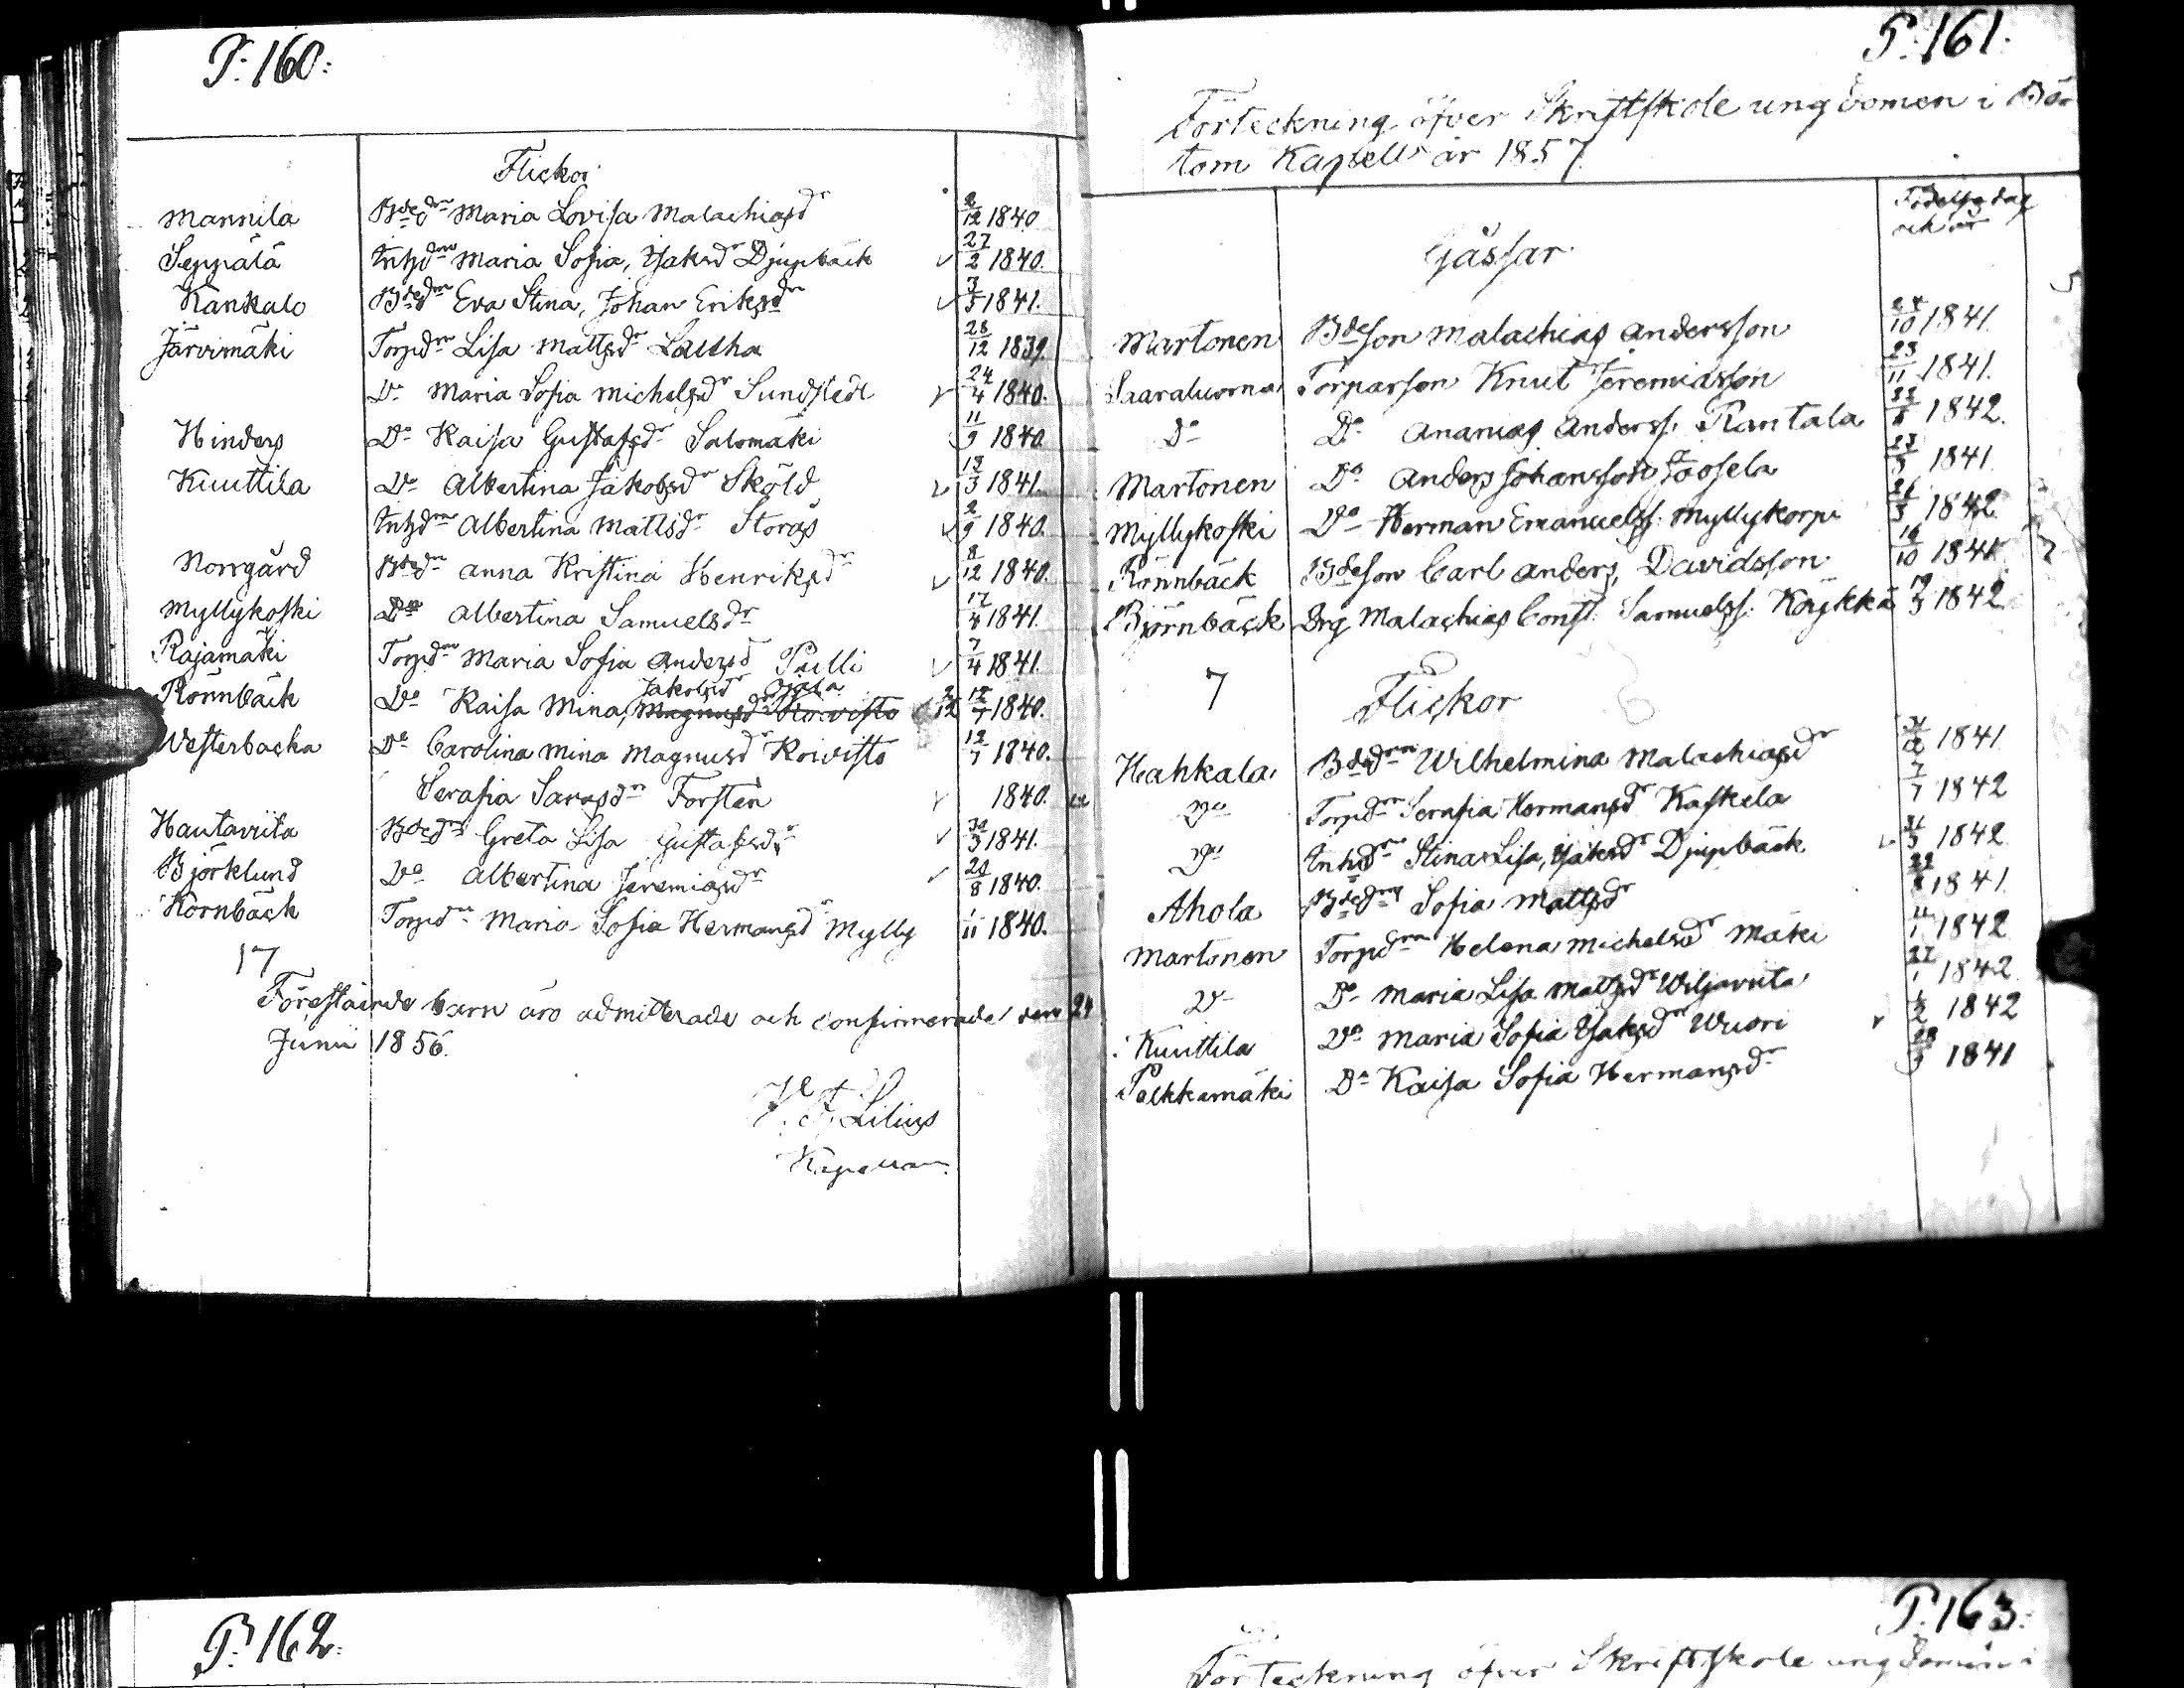 P: 160:
Flickor
Mannila Bdedr Maria Lovisa Malachiasdr 2/12 1840
Seppälä Inhdr Maria Sofia, Isaksdr Djupbäck 27/2 1840.
Kankalo Bdedr Eva Stina, Johan Eriksdr 3/5 1841.
Järvimäki Torpdr Lisa Mattsdr 28/12 1839
Do Maria Sofia Michelsdr Sundstedt 24/4 1840.
Hinders Do Kaisa Gustafsdr Salomäki 11/9 1840
Kuuttila Do Albertina Jakobsdr Sköld 13/3 1841.
Inhdr Albertina Mattsdr Storås 2/9 1840.
Norrgård Bdedr Anna Kristina Henriksdr 8/12 1840.
Myllykoski Do Albertina Samuelsdr 17/4 1841.
Rajamäki Torpdr Maria Sofia Andersd Pulli 7/4 1841.
Jakobsdr Ojala
Rönnbäck Do Kaisa Mina, Magnusdr Koivisto 12/7 1840.
Westerbacka Do Carolina Mina Magnusdr Koivisto 12/7 1840.
Serafia Sarasdr Forsten 1840.
Hautaviita Bdedr Greta Lisa Gustafsdr 30/3 1841.
Björklund Do Albertina Jeremiasdr 20/8 1840.
Kornbäck Torpdr Maria Sofia Hermansdr Mylly 1/11 1840.
17
Förestående barn äro admitterade och confirmerade den 24
Junii 1856.
Lilius
Kapellan.
P: 161:
Förteckning öfver Skriftskole ungdomen i Bö
tom Kapell år 1857.
Födelsedag
och år
Gåssar
Martonen Bdeson Malachias Andersson 24/10 1841.
Saaraluoma Torparson Knut Jeremiasson 23/11 1841.
Do Do Ananias Anderss. Rantala 1842.
Martonen Do Anders Johansson Joosela 1841
Myllykoski Do Herman Emanuelss. Myllykorpi 26/3 1842
Rönnbäck Bdeson Carl Anders, Davidsson 16/10 1841
Björnbäck Drg Malachias Const. Samuelss. Köykkä 19/3 1842
7
Flickor
Hahkala Bdedr Wilhelmina Malachiasdr 31/12 1841
Do Torpdr Serafia Hermansdr Kaskela 7/7 1842
Do Inhdr Stina Lisa, Isaksdr Djupbäck 31/3 1842
Ahola Bdedr Sofia Mattsdr 1841
Martonen Torpdr Helena Michelsdr Mäki 11/1 1842
Do Do Maria Lisa Mattsdr Wiljaviita 27/1 1842
Kuuttila Do Maria Sofia Isaksdr Wuori 1/2 1842
Palkkimäki Do Kaisa Sofia Hermansdr 1841
P: 162:
P: 163:
Förteckning öfver Skriftskole ungdomen i